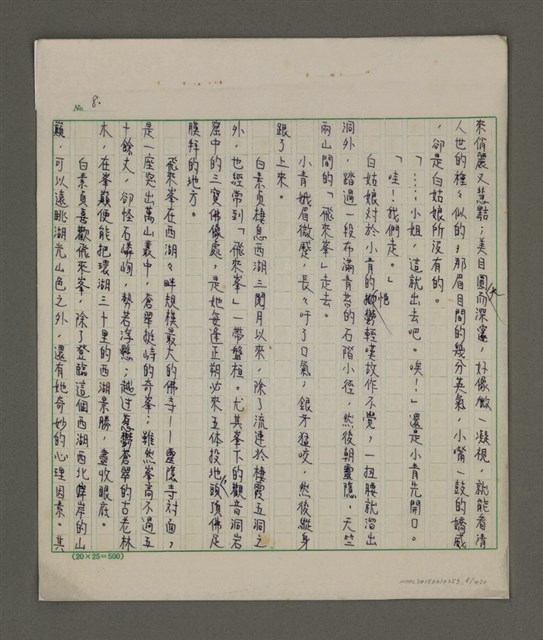 No. 8.
來俏麗又慧黠；美目圓而深邃，好像微一凝視，就能看清
人世的種々似的，那眉目間的幾分英氣，小嘴一鼓的嬌憨
，卻是白姑娘所沒有的。
「……小姐，這就出去吧。唉！」還是小青先開口。
「哇！我們走。」
白姑娘對於小青的悒鬱輕嘆故作不覺，一扭腰就溜出
洞外，踏過一段布滿青苔的石階小徑，然後朝靈隱，天竺
兩山間的「飛來峯」走去。
小青娥眉微蹙，長々吁了口氣，銀牙猛咬，然後縱身
跟了上來。
白素貞棲息西湖三閱月以來，除了流連於棲霞五洞之
外，也經常到「飛來峯」一帶盤桓。尤其峯下的觀音洞岩
窟中的三寶佛像處，是她每逢正朔必來五體投地頭頂佛足
膜拜的地方。
飛來峯在西湖々畔規模最大的佛寺——靈隱寺対面，
是一座突出萬山叢中，蒼翠挺峙的奇峯；雖然峯高不過五
十餘丈，卻怪石嶙峋，勢若浮懸；越过蓊鬱蒼翠的古老林
木，在峯巔便能把環湖三十里的西湖景勝，盡收眼底。
白素貞喜歡飛來峯，除了登臨這個西湖西北岸的山
巔，可以遠眺湖光山色之外，還有她奇妙的心理因素。其
(20×25=500)